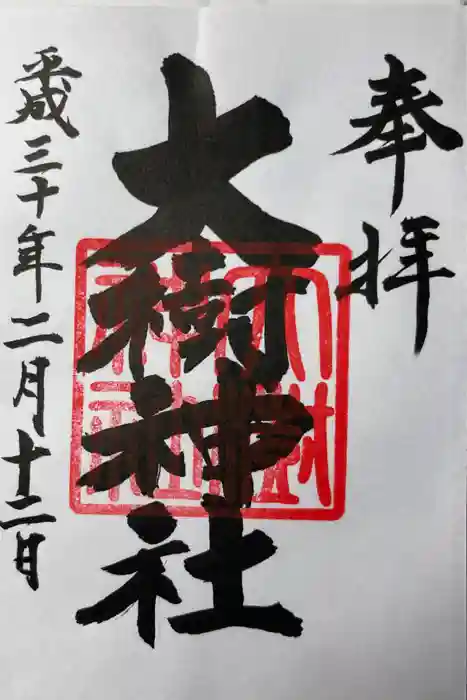 奉拝
大樹神社
大樹神社
平成三十年二月十二日